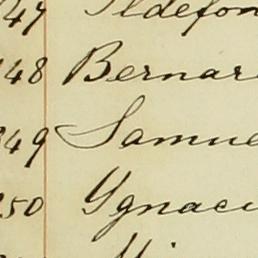 47 Ildefon
48 Bernar
349 Samue
350 Ygnaci